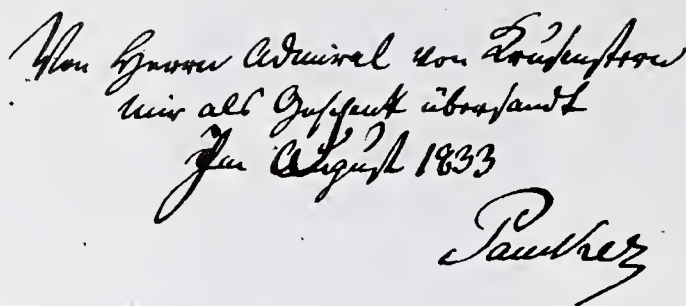 Von Herrn Admiral von Krusenstern
mir als Geschenk übersandt
Im August 1833
Paucker